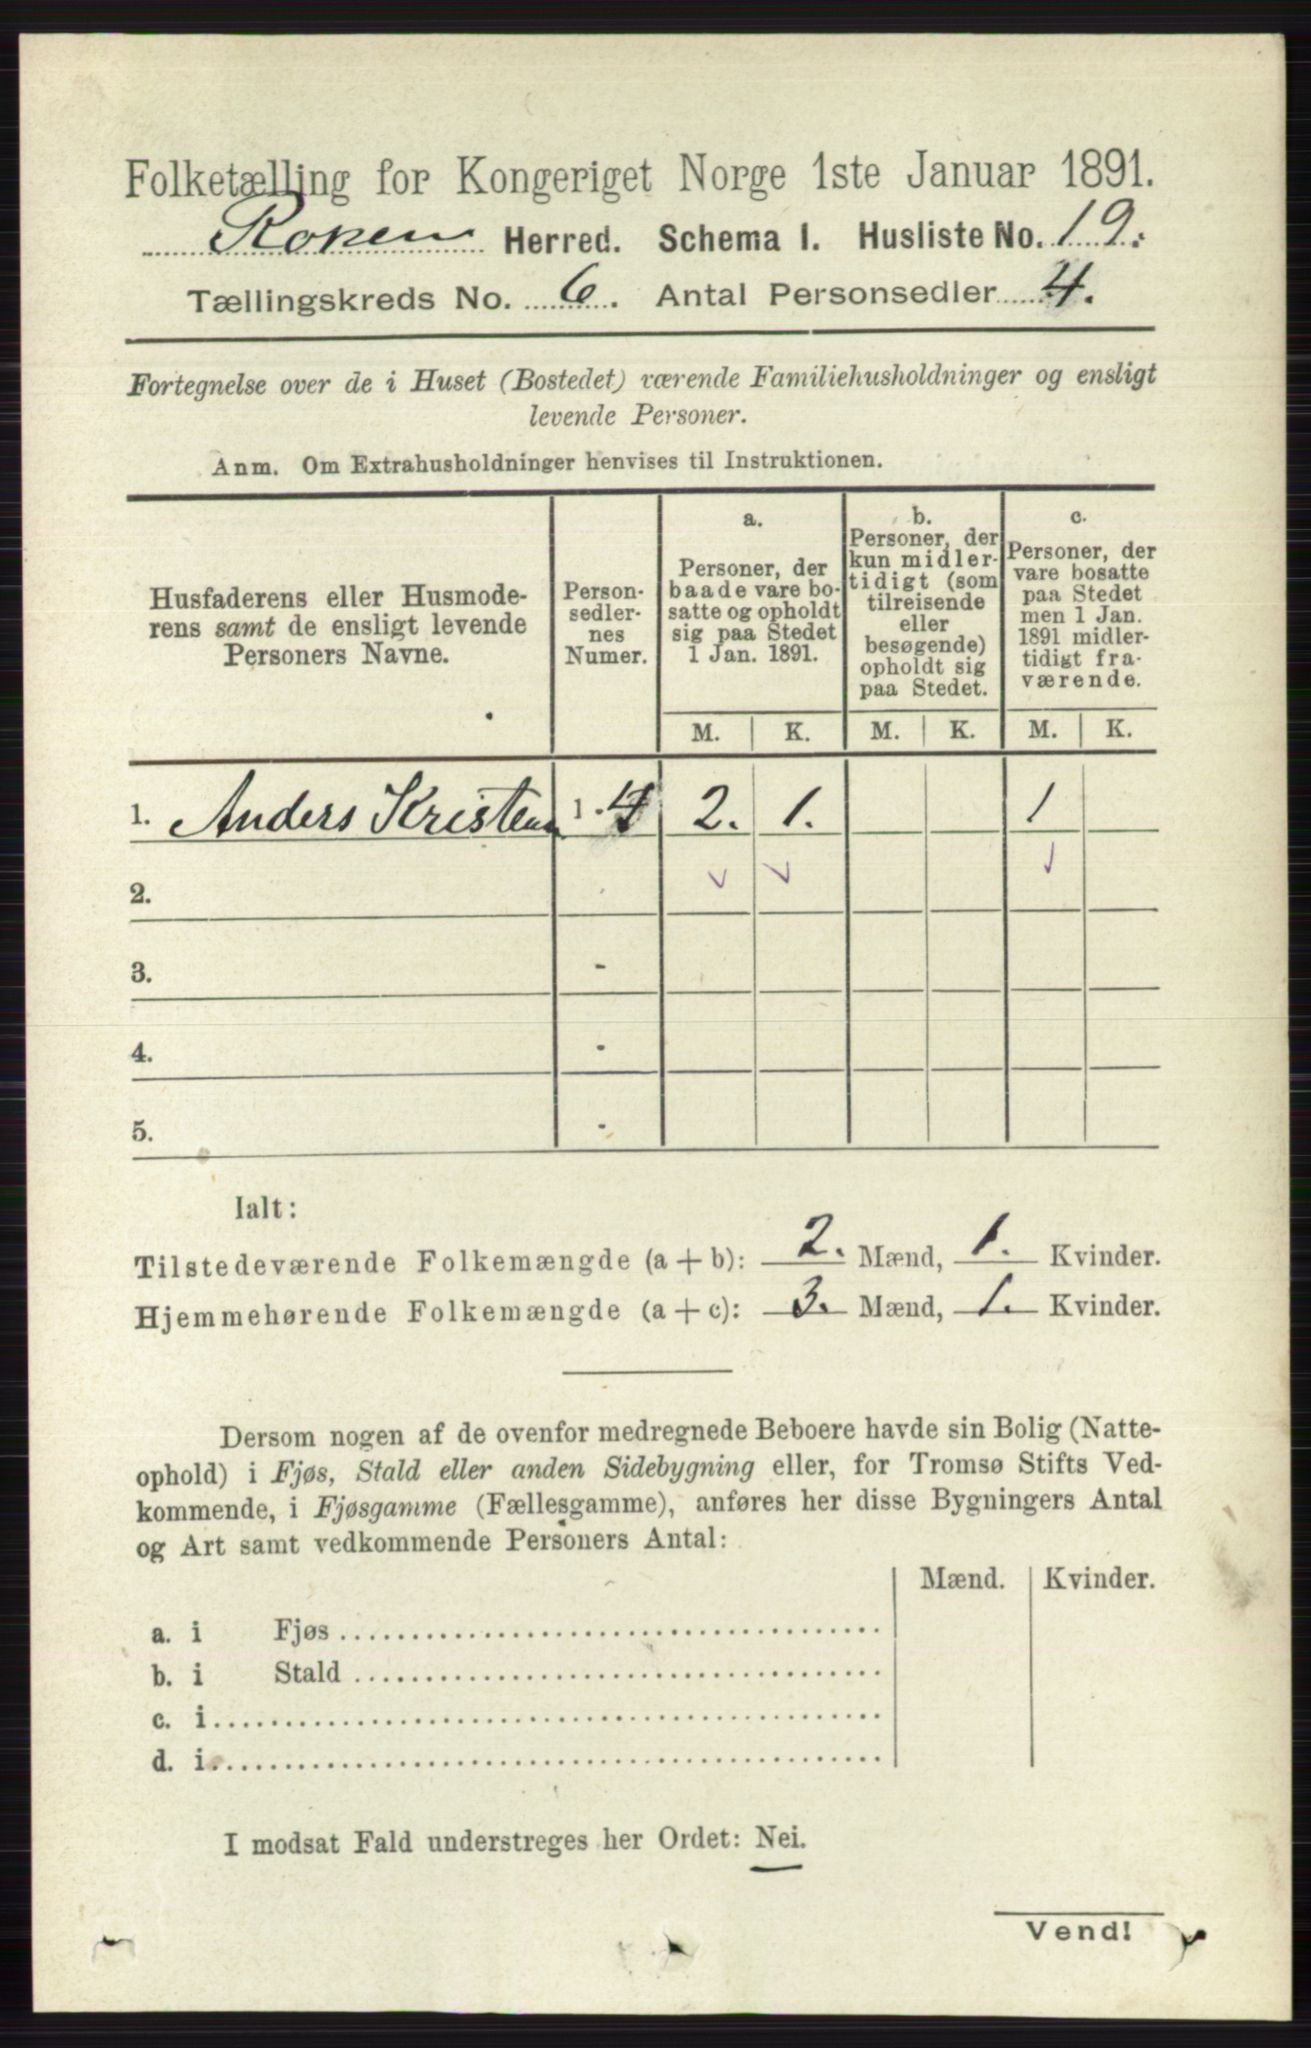 Folketælling for Kongeriget Norge 1ste Januar 1891.
Roken Herred. Schema I. Husliste No. 19.
Tællingskreds No. 6. Antal Personsedler 4.
Fortegnelse over de i Huset (Bostedet) værende Familiehusholdninger og ensligt
levende Personer.
Anm. Om Extrahusholdninger henvises til Instruktionen.
Husfaderens eller Husmode-
rens samt de ensligt levende
Personers Navne.
Person-
sedler-
nes
Numer.
a.
Personer, der
baade vare bo-
satte og opholdt
sig paa Stedet
1 Jan. 1891.
b.
Personer, der
kun midler-
tidigt (som
tilreisende
eller
besøgende)
opholdt sig
paa Stedet.
c.
Personer, der
vare bosatte
paa Stedet
men 1 Jan.
1891 midler-
tidigt fra-
værende.
M. K. M. K. M. K.
1. Anders Kristensen 1.4 2. 1. 1
2.
3. -
4. -
5. -
Ialt:
Tilstedeværende Folkemængde (a + b): 2. Mænd, 1. Kvinder.
Hjemmehørende Folkemængde (a + c): 3. Mænd, 1. Kvinder.
Dersom nogen af de ovenfor medregnede Beboere havde sin Bolig (Natte-
ophold) i Fjøs, Stald eller anden Sidebygning eller, for Tromsø Stifts Ved-
kommende, i Fjøsgamme (Fællesgamme), anføres her disse Bygningers Antal
og Art samt vedkommende Personers Antal:
Mænd. Kvinder.
a. i Fjøs
b. i Stald
c. i
d. i
I modsat Fald understreges her Ordet: Nei.
Vend!